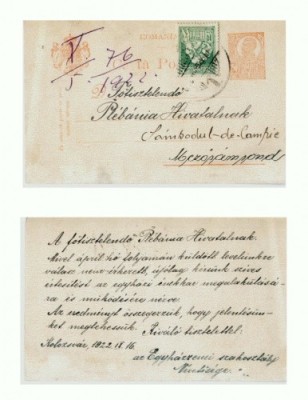 V 76
5. 1922.
ROMANIA
tă Po
Főtisztelendő
Plébánia Hivatalnak
Sâmbodul-de-Câmpie
Mezőzsámbond
A főtisztelendő Plébánia Hivatalnak.
Mivel április hó folyamán küldött levelünkre
válasz nem érkezett, újólag kérünk szíves
értesítést az egyházi énekkar megalakulásá-
ra és működésére nézve.
Az eredményt összegezzük, hogy jelentésün-
ket megtehessük. Kiváló tisztelettel:
Kolozsvár, 1922. V. 16.
az Egyházzenei szakosztály